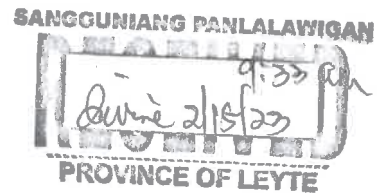 SANGGUNIANG PANLALAWIGAN
9:33 am
Divine 2/15/23
PROVINCE OF LEYTE